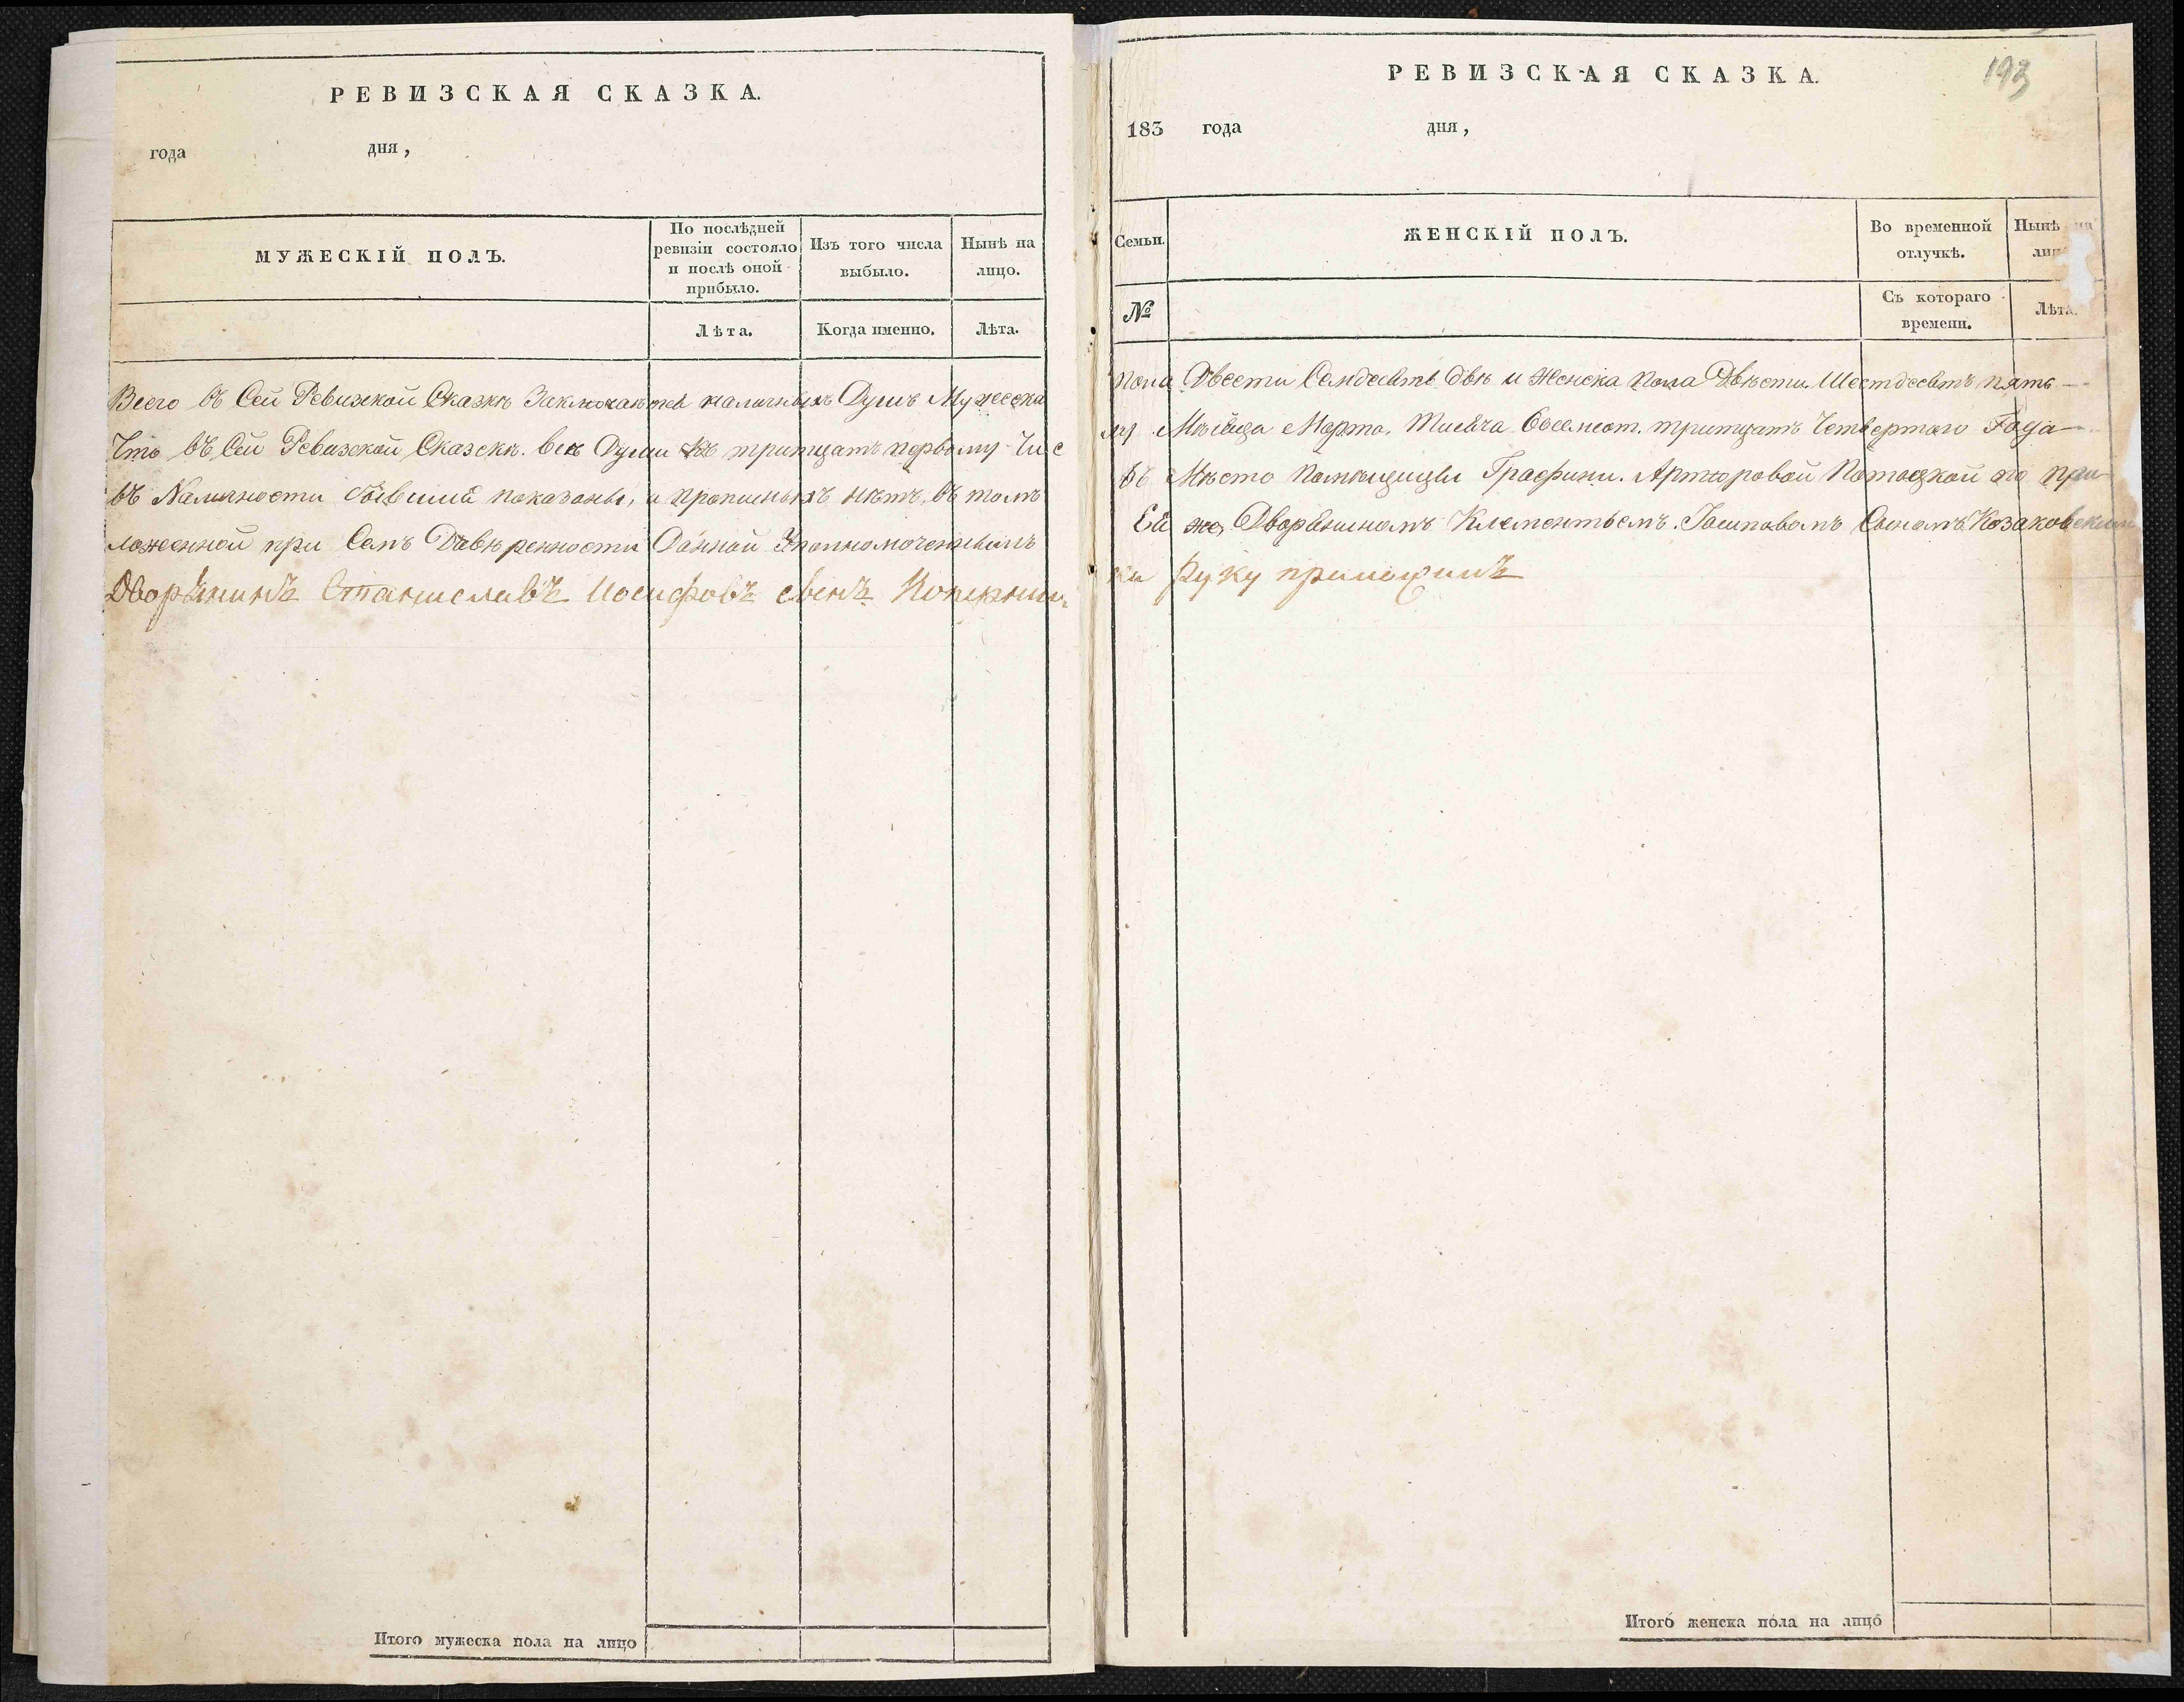 РЕВИЗСКАЯ СКАЗКА.
года дня,
МУЖЕСКІЙ ПОЛЪ.
По послѣдней
ревизіи состояло
и послѣ оной
прибыло.
Изъ того числа
выбыло.
Нынѣ на
лицо.
Лѣта.
Когда именно.
Лѣта.
Всего въ Сей Ревизкой Сказкѣ Заключается наличныхъ Душъ Мужеска
Что въ Сей Ревизской Сказскѣ. все Души къ тритцать первому Чис
въ Наличности бывшиа показаны, и прописныхъ нѣтъ, въ томъ
ложенной при Семъ Довѣренности Данной Уполномоченнымъ
Дворянинъ Станиславъ Иосифовъ сынъ
Итого мужеска пола на лицо
РЕВИЗСКАЯ СКАЗКА.
193
183 года дня,
Семьи.
ЖЕНСКІЙ ПОЛЪ.
Во временной
отлучкѣ.
Нынѣ на
лиц
№
Съ котораго
времени.
Лѣта.
пола Двести Семдесятъ двѣ и Женска пола Двѣсти Шестдесятъ пять
лу Мѣсяца Марта. Тысяча Восемсот. тритцать Четвертаго Года
въ Мѣсто Помѣщицы Графини. Артюровой Потоцкой по при
Ей же, Дворяниномъ Клементьемъ. Гашповымъ Сыномъ Козаковским
ки Руку приложилъ
Итого женска пола на лицо